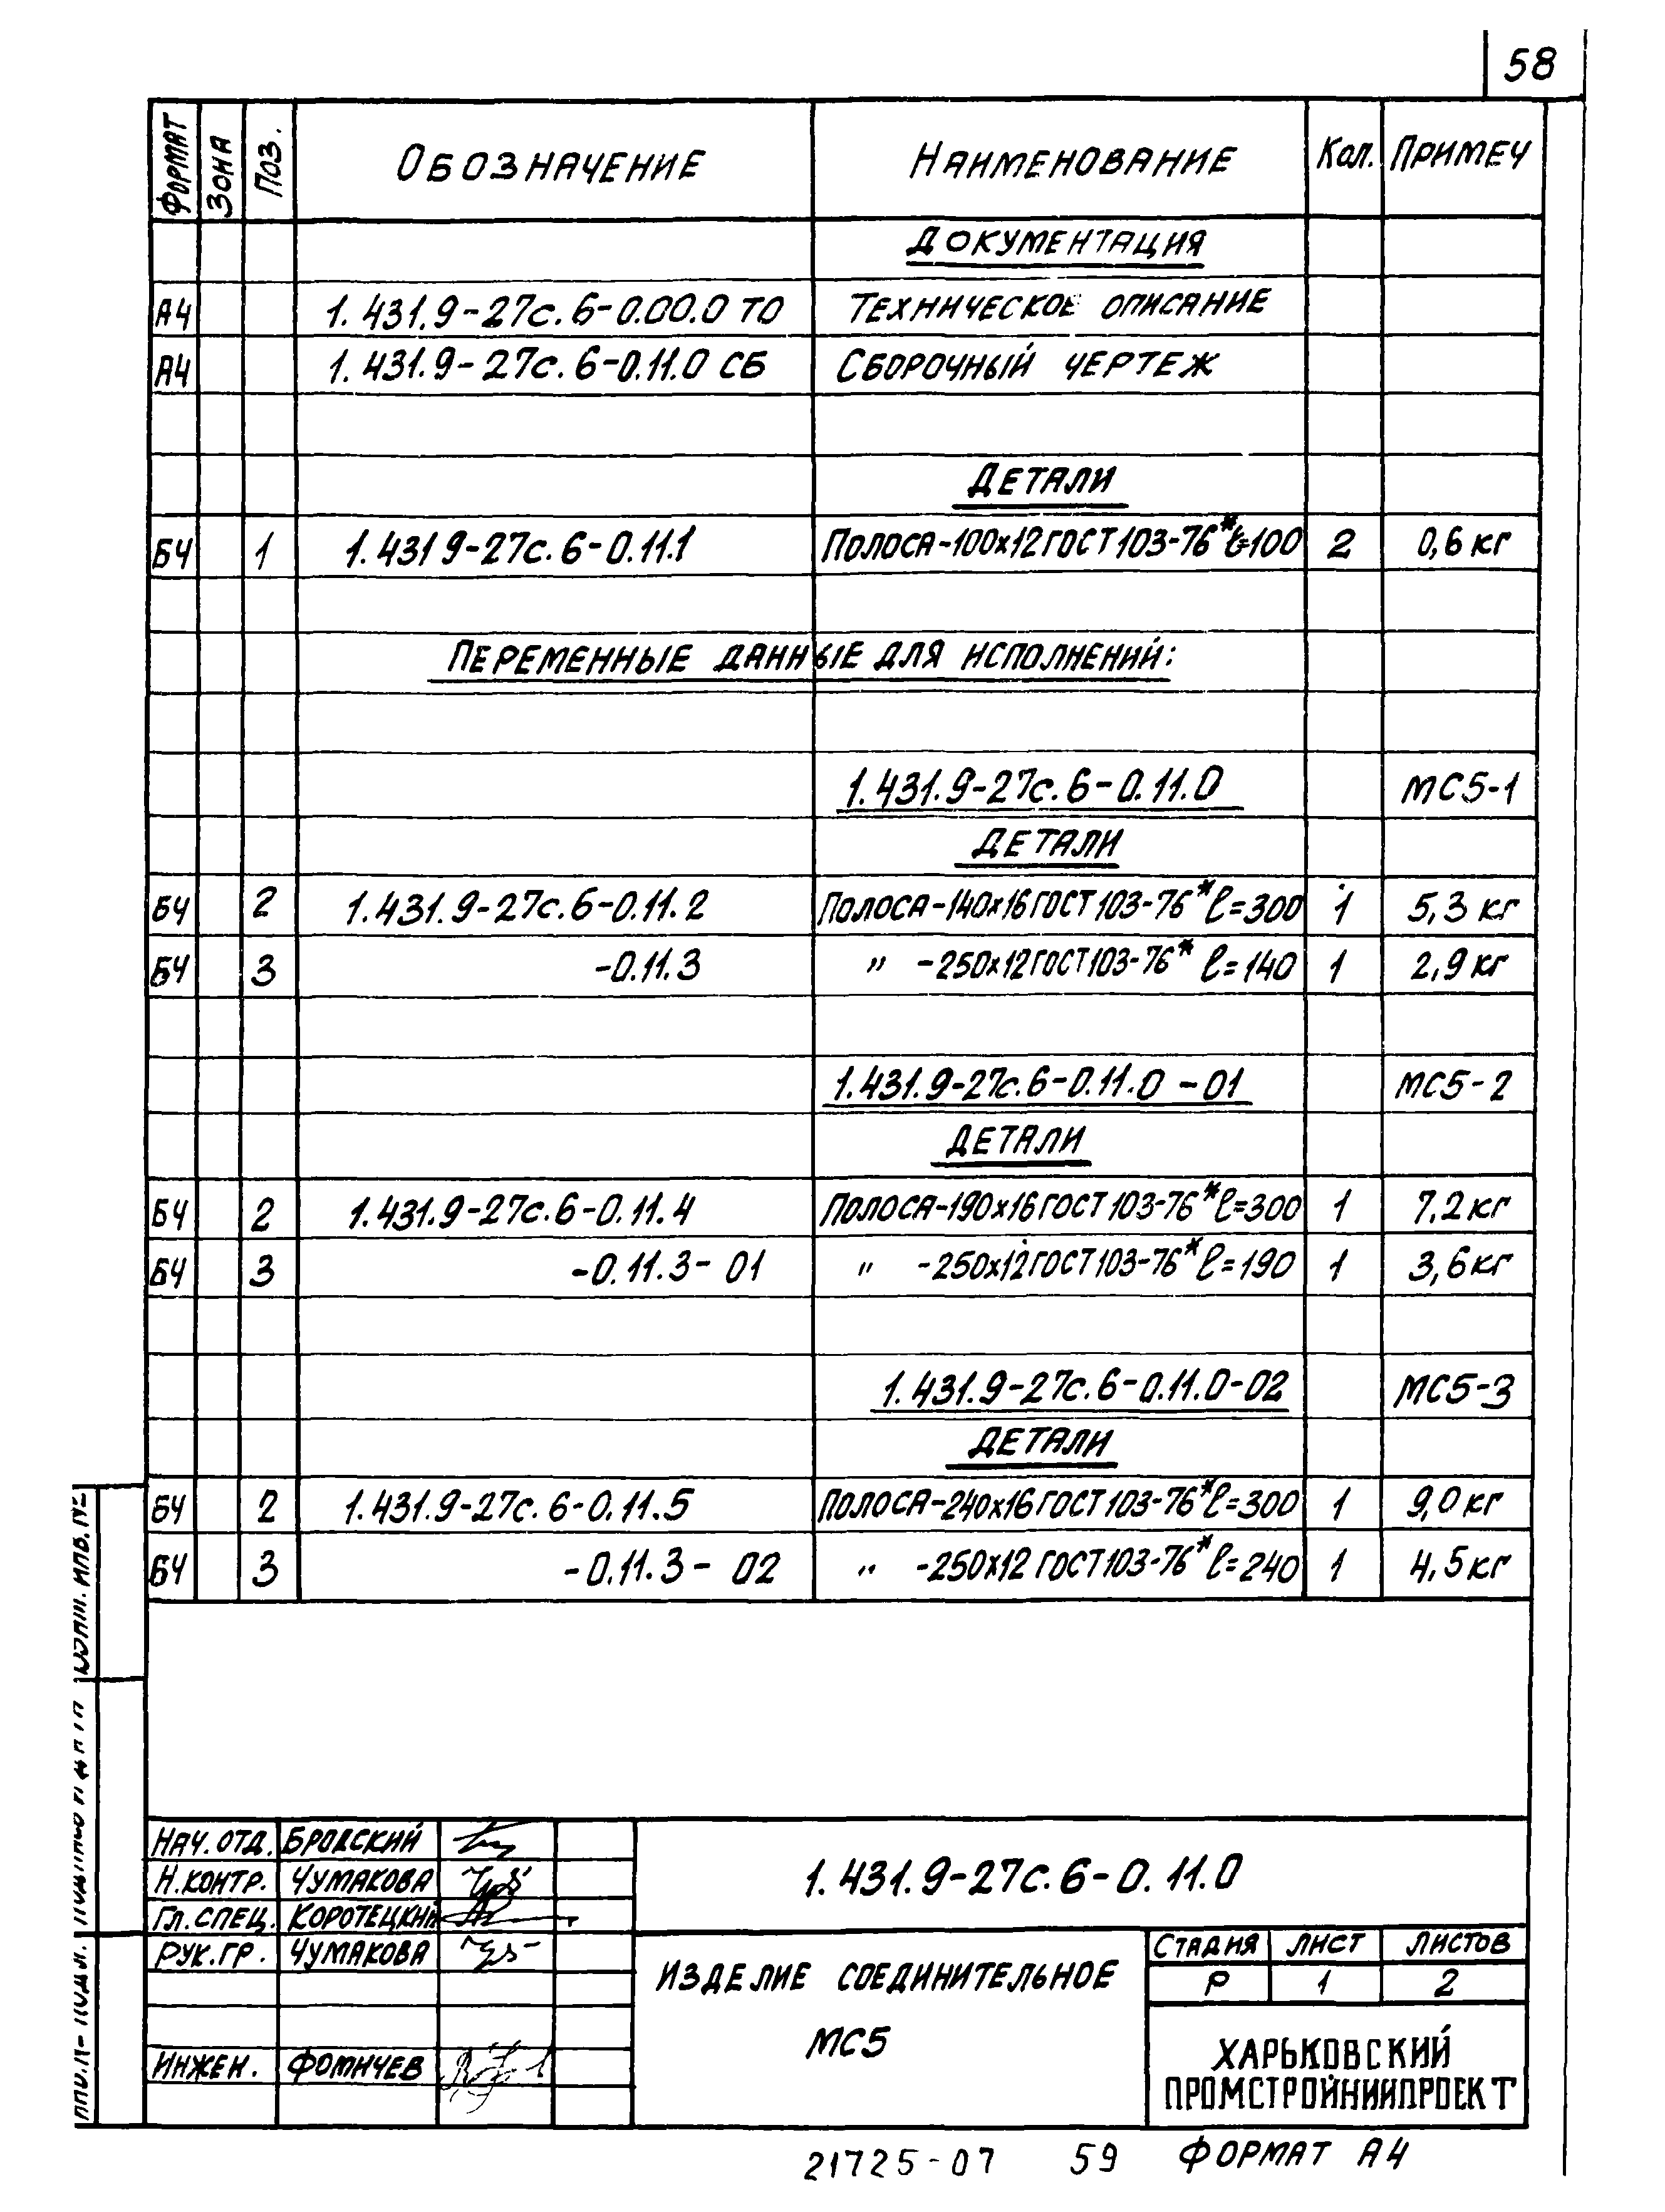 58
Формат Зона Поз. Обозначение Наименование Кол. Примеч
Документация
А4 1.431.9-27с.6-0.00.0 ТО Техническое описание
А4 1.431.9-27с.6-0.11.0 СБ Сборочный чертеж
Детали
БЧ 1 1.431 9-27с.6-0.11.1 Полоса-100х12 ГОСТ 103-76* ℓ=100 2 0,6 кг
Переменные данные для исполнений:
1.431.9-27с.6-0.11.0 МС5-1
Детали
БЧ 2 1.431.9-27с.6-0.11.2 Полоса-140х16 ГОСТ 103-76* ℓ=300 1 5,3 кг
БЧ 3 -0.11.3 " -250х12 ГОСТ 103-76* ℓ=140 1 2,9 кг
1.431.9-27с.6-0.11.0 -01 МС5-2
Детали
БЧ 2 1.431.9-27с.6-0.11.4 Полоса-190х16 ГОСТ 103-76* ℓ=300 1 7.2 кг
БЧ 3 -0.11.3-01 " -250х12 ГОСТ 103-76* ℓ=190 1 3,6 кг
1.431.9-27с.6-0.11.0-02 МС5-3
Детали
БЧ 2 1.431.9-27с.6-0.11.5 Полоса-240х16 ГОСТ 103-76* ℓ=300 1 9,0 кг
БЧ 3 -0.11.3-02 " -250х12 ГОСТ 103-76* ℓ=240 1 4,5 кг
Нач. отд. Бродский
Н.контр. Чумакова
Гл. спец. Коротецкий
Рук. гр. Чумакова
Инжен. Фомичев
1.431.9-27с.6-0.11.0
Изделие соединительное
МС5
Стадия Лист Листов
Р 1 2
ХАРЬКОВСКИЙ
ПРОМСТРОЙНИИПРОЕКТ
21725-07 59 Формат А4